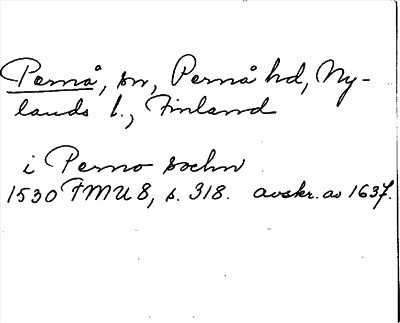 Pernå, sn, Pernå hd, Ny-
lands l., Finland
i Perno sochn
1530 FMU 8, s. 318. avskr. av 1637.